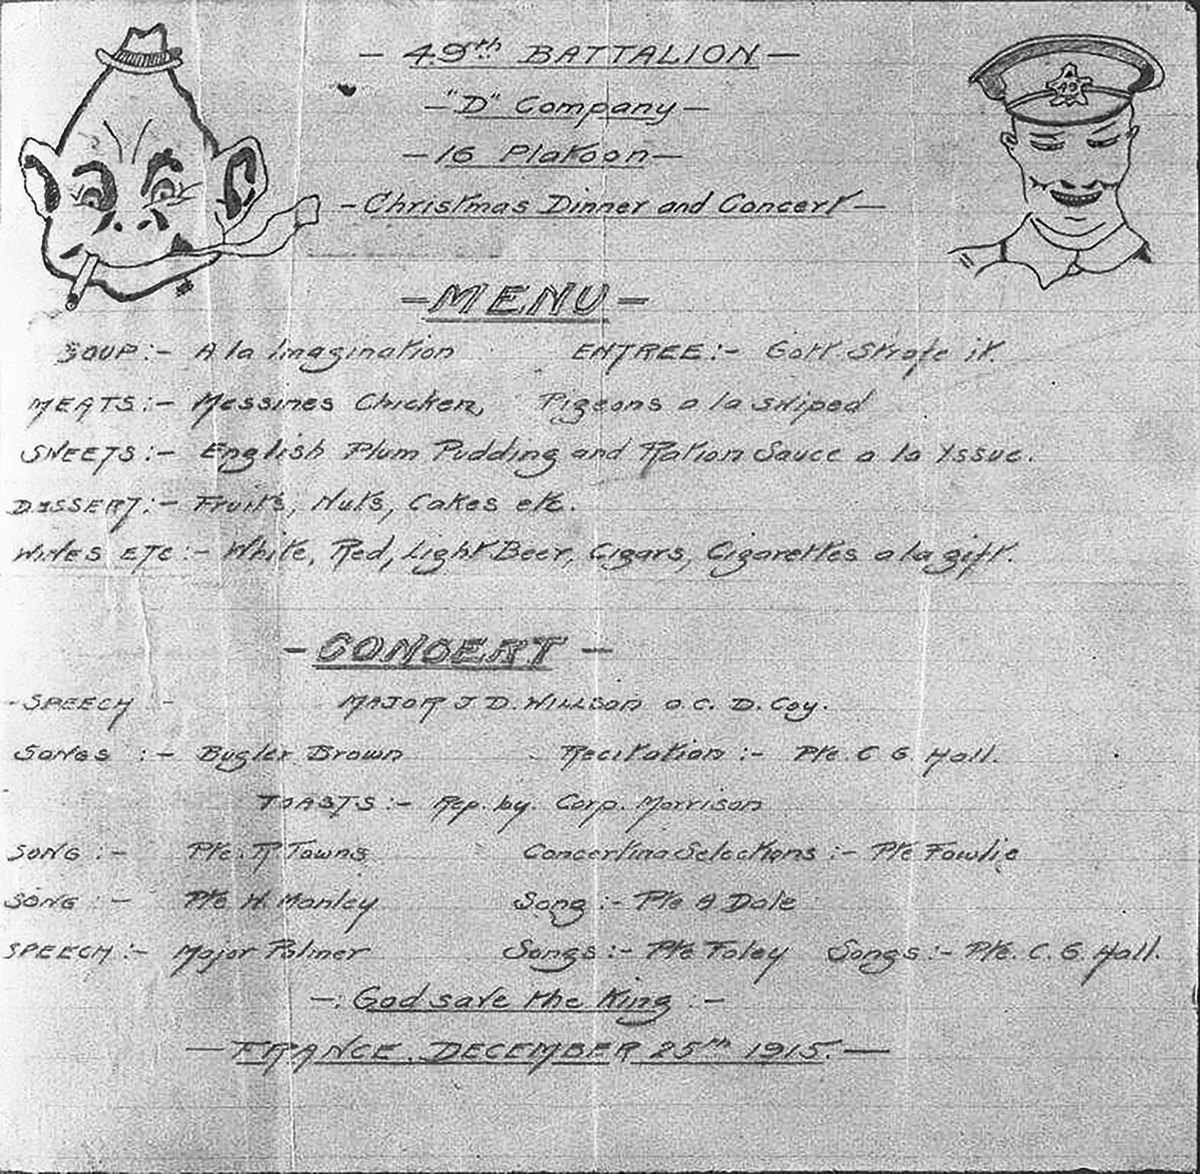 — 49th BATTALION —
— "D" Company —
— 16 Platoon —
— Christmas Dinner and Concert —
— MENU —
SOUP:- A la Imagination ENTREE:- Gott Strafe it.
MEATS:- Messines Chicken, Pigeons a la sniped
SWEETS:- English Plum Pudding and Ration Sauce a la Issue.
DISSERT:- Fruits, Nuts, Cakes etc.
WINES ETC:- White, Red, Light Beer, Cigars, Cigarettes a la gift.
— CONCERT —
- SPEECH - MAJOR J D. WILLSON O.C. D. Coy.
SONGS :- Bugler Brown Recitation :- Pte. C G. Hall.
TOASTS:- Rep. by. Corp. Morrison
SONG :- Pte. R Towns Concertina Selections :- Pte Fowlie
SONG :- Pte H. Manley Song :- Pte A Dale
SPEECH :- Major Palmer Songs :- Pte Foley Songs :- Pte. C. G. Hall.
—: God save the King :—
— FRANCE. DECEMBER 25th 1915. —
49